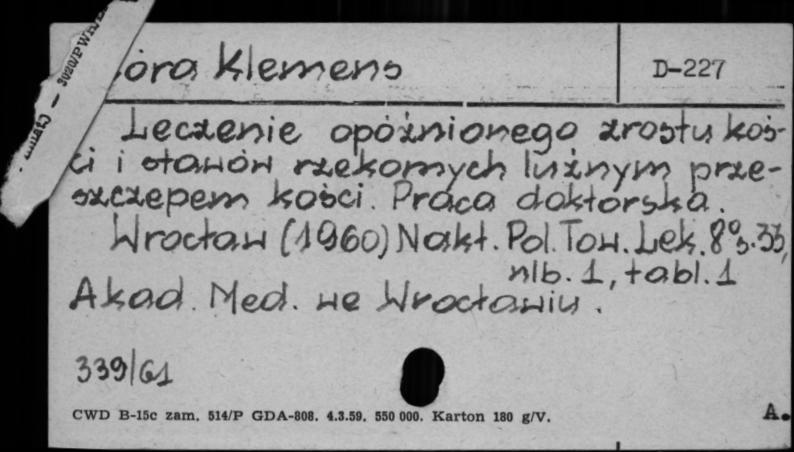 óra Klemens
D-227
Leczenie opóźnionego zrostu koś-
ci i stawów rzekomych luźnym prze-
szczepem kości. Praca doktorska.
Wrocław (1960) Nakł. Pol. Tow. Lek. 8° s. 33,
nlb. 1, tabl. 1
Akad. Med. we Wrocławiu.
339/61
CWD B-15c zam. 514/P GDA-808. 4.3.59. 550 000. Karton 180 g/V.
A.